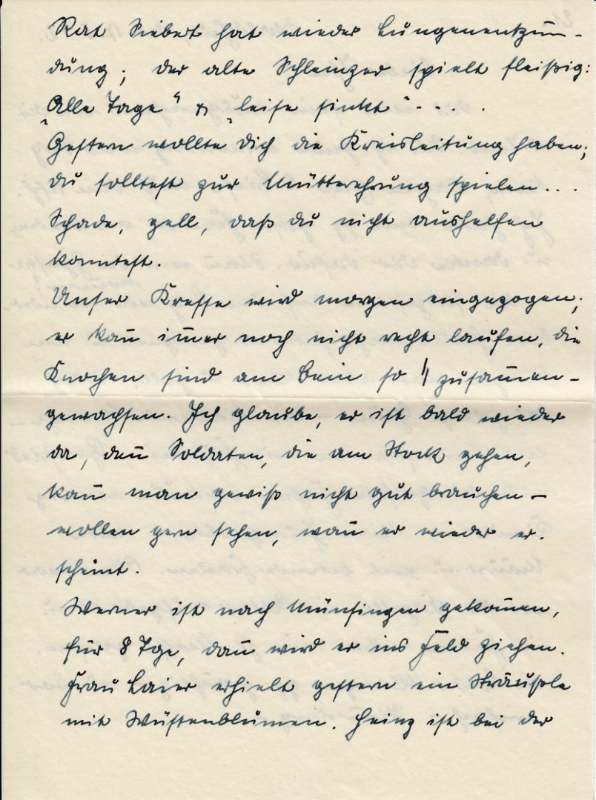 Rat Siebert hat wieder Lungenentzün-
dung; der alte Schleinzer spielt fleißig:
„Alle Tage" & „leise sinkt" - . . .
Gestern wollte Dich die Kreisleitung haben;
du solltest zur Mütterehrung spielen...
Schade, gell, daß du nicht aushelfen
konntest.
Unser Kresse wird morgen eingezogen;
er kañ im̃er noch nicht recht laufen, die
Knochen sind am Bein so zusam̃en-
gewachsen. Ich glaube, er ist bald wieder
da, deñ Soldaten, die am Stock gehen,
kañ man gewiß nicht gut brauchen -
wollen gern sehen, wañ er wieder er-
scheint.
Werner ist nach Münsingen gekom̃en,
für 8 Tge, dañ wird er ins Feld ziehen.
Frau Laier erhielt gestern ein Sträusole
mit Wüstenblumen. Heinz ist bei der